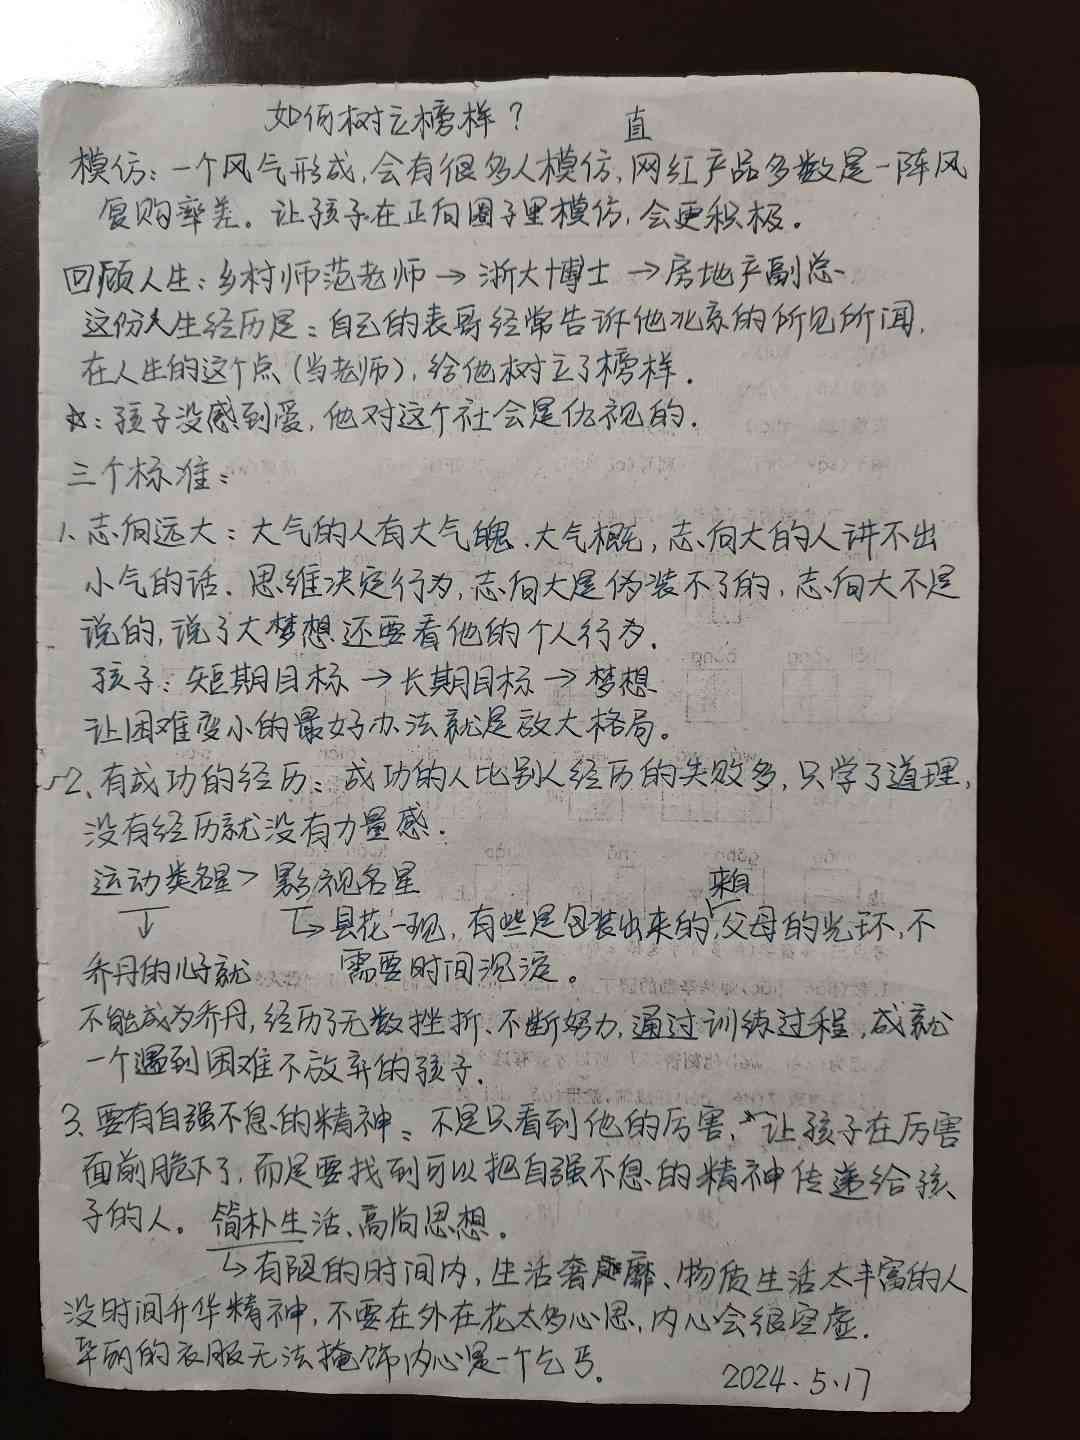 如何树立榜样？ 直
模仿：一个风气形成，会有很多人模仿，网红产品多数是一阵风
复购率差。让孩子在正向圈子里模仿，会更积极。
回顾人生：乡村师范老师→浙大博士→房地产副总
这份人生经历是：自己的表哥经常告诉他北京的所见所闻，
在人生的这个点（当老师），给他树立了榜样．
☆：孩子没感到爱，他对这个社会是仇视的．
三个标准：
1、志向远大：大气的人有大气魄、大气概，志向大的人讲不出
小气的话．思维决定行为，志向大是伪装不了的，志向大不是
说的，说了大梦想还要看他的个人行为．
孩子：短期目标→长期目标→梦想
让困难变小的最好办法就是放大格局。
2、有成功的经历：成功的人比别人经历的失败多，只学了道理，
没有经历就没有力量感．
运动类名星＞影视名星
来自
↳昙花一现，有些是包装出来的，父母的光环，不
↓
乔丹的儿子就 需要时间沉淀。
不能成为乔丹，经历了无数挫折、不断努力，通过训练过程，成就
一个遇到困难不放弃的孩子．
3、要有自强不息的精神：不是只看到他的厉害，让孩子在厉害
面前跪下了，而是要找到可以把自强不息的精神传递给孩
子的人。简朴生活、高尚思想．
↳有限的时间内，生活奢靡、物质生活太丰富的人
没时间升华精神，不要在外在花太多心思，内心会很空虚．
华丽的衣服无法掩饰内心是一个乞丐．
2024.5.17